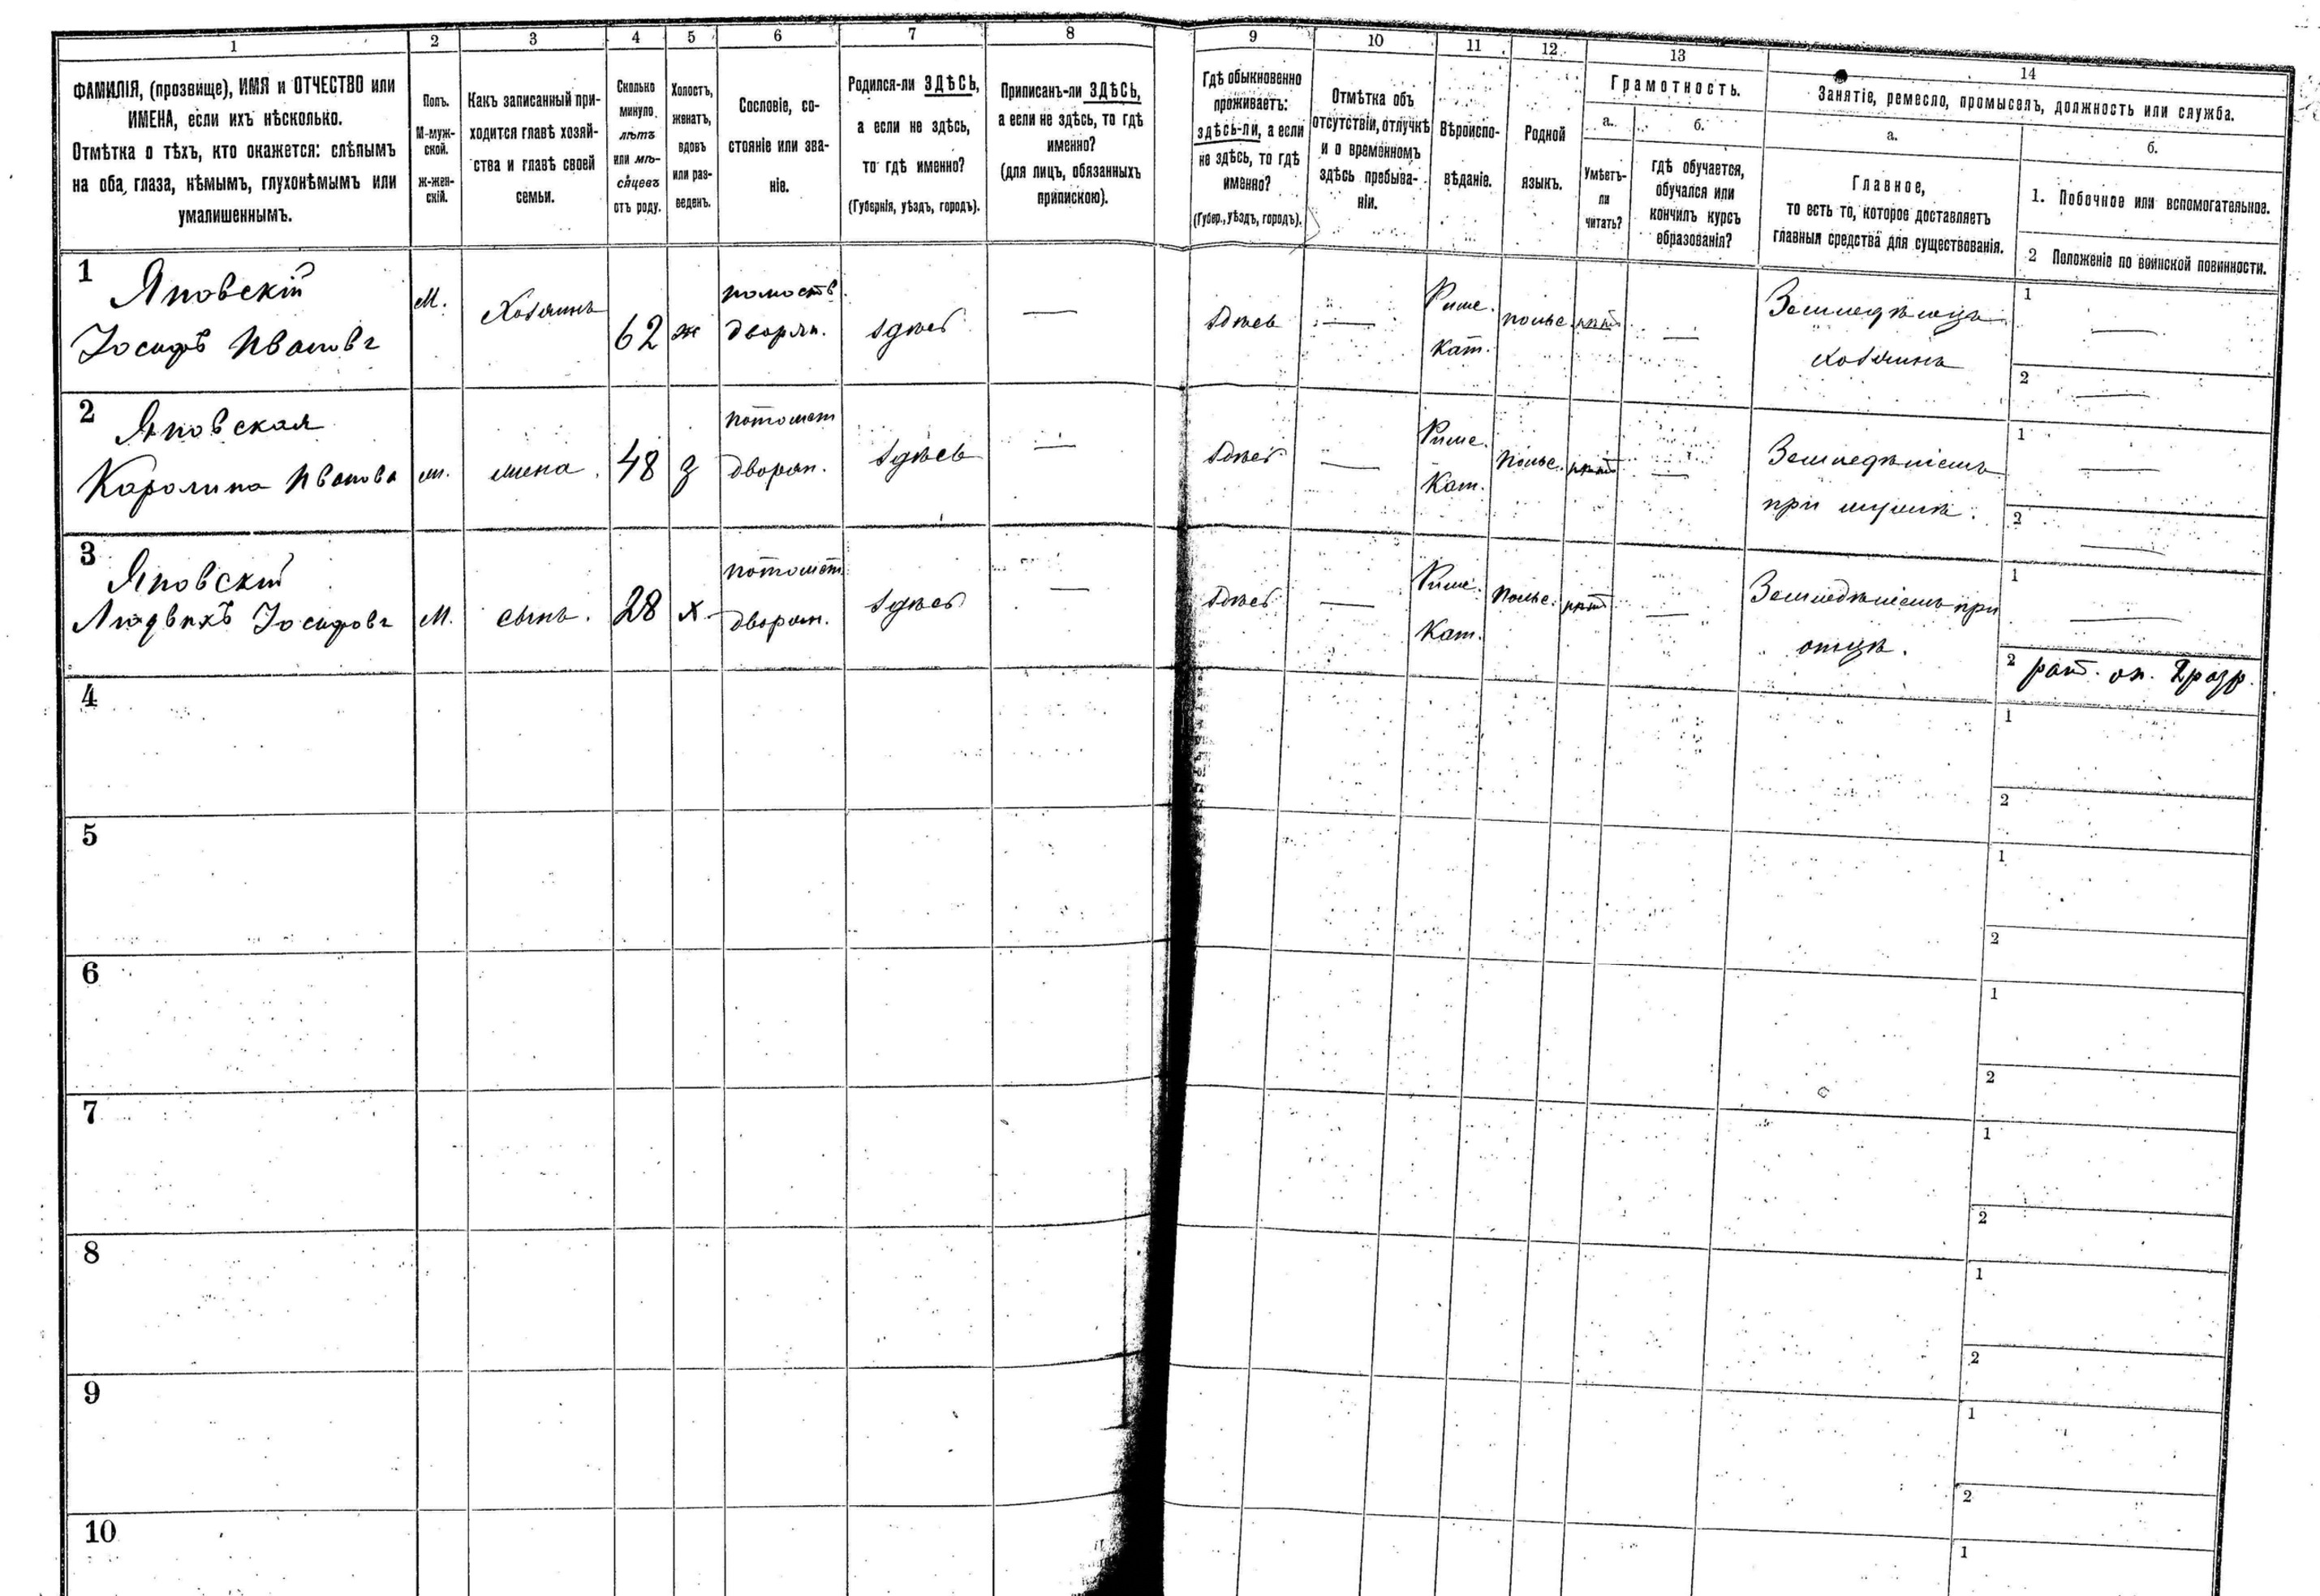 1 2 3 4 5 6 7 8 9 10 11 12 13 14
ФАМИЛІЯ, (прозвище), ИМЯ и ОТЧЕСТВО или
ИМЕНА, если ихъ нѣсколько.
Отмѣтка о тѣхъ, кто окажется: слѣпымъ
на оба глаза, нѣмымъ, глухонѣмымъ или
умалишеннымъ.
Полъ.
М-муж-
ской.
ж-жен-
скій.
Какъ записанный при-
ходится главѣ хозяй-
ства и главѣ своей
семьи.
Сколько
минуло
лѣтъ
или мѣ-
сяцевъ
отъ роду.
Холостъ,
женатъ,
вдовъ
или раз-
веденъ.
Сословіе, со-
стояніе или зва-
ніе.
Родился-ли ЗДѢСЬ,
а если не здѣсь,
то гдѣ именно?
(Губернія, уѣздъ, городъ).
Приписанъ-ли ЗДѢСЬ,
а если не здѣсь, то гдѣ
именно?
(для лицъ, обязанныхъ
припискою).
Гдѣ обыкновенно
проживаетъ:
здѣсь-ли, а если
не здѣсь, то гдѣ
именно?
(Губер., уѣздъ, городъ).
Отмѣтка объ
отсутствіи, отлучкѣ
и о временномъ
здѣсь пребыва-
ніи.
Вѣроиспо-
вѣданіе.
Родной
языкъ.
Грамотность.
а.
Умѣетъ-
ли
читать?
б.
гдѣ обучается,
обучался или
кончилъ курсъ
образованія?
Занятіе, ремесло, промыселъ, должность или служба.
а.
Главное,
то есть то, которое доставляетъ
главныя средства для существованія.
б.
1. Побочное или вспомогательное.
2 Положеніе по воинской повинности.
1
Яновскій
Іосифъ Ивановъ
М.
Хозяинъ
62
ж
дворян.
здѣсь
здѣсь
Римс.
Кат.
польс.
Земледѣлецъ
хозяинъ
1
2
2
Яновская
Каролина Иванова
ж.
жена.
48
з
потомст
дворян.
здѣсь
здѣсь
Римс.
Кат.
польс.
Земледѣліемъ
при мужѣ.
1
2
3
Яновскій
Людвикъ Іосифовъ
М.
сынъ.
28
х
потомст
дворян.
здѣсь
здѣсь
Римс.
Кат.
польс.
Земледѣліемъ при
отцѣ.
1
2 рат. оп. 2 разр.
4
1
2
5
1
2
6
1
2
7
1
2
8
1
2
9
1
2
10
1